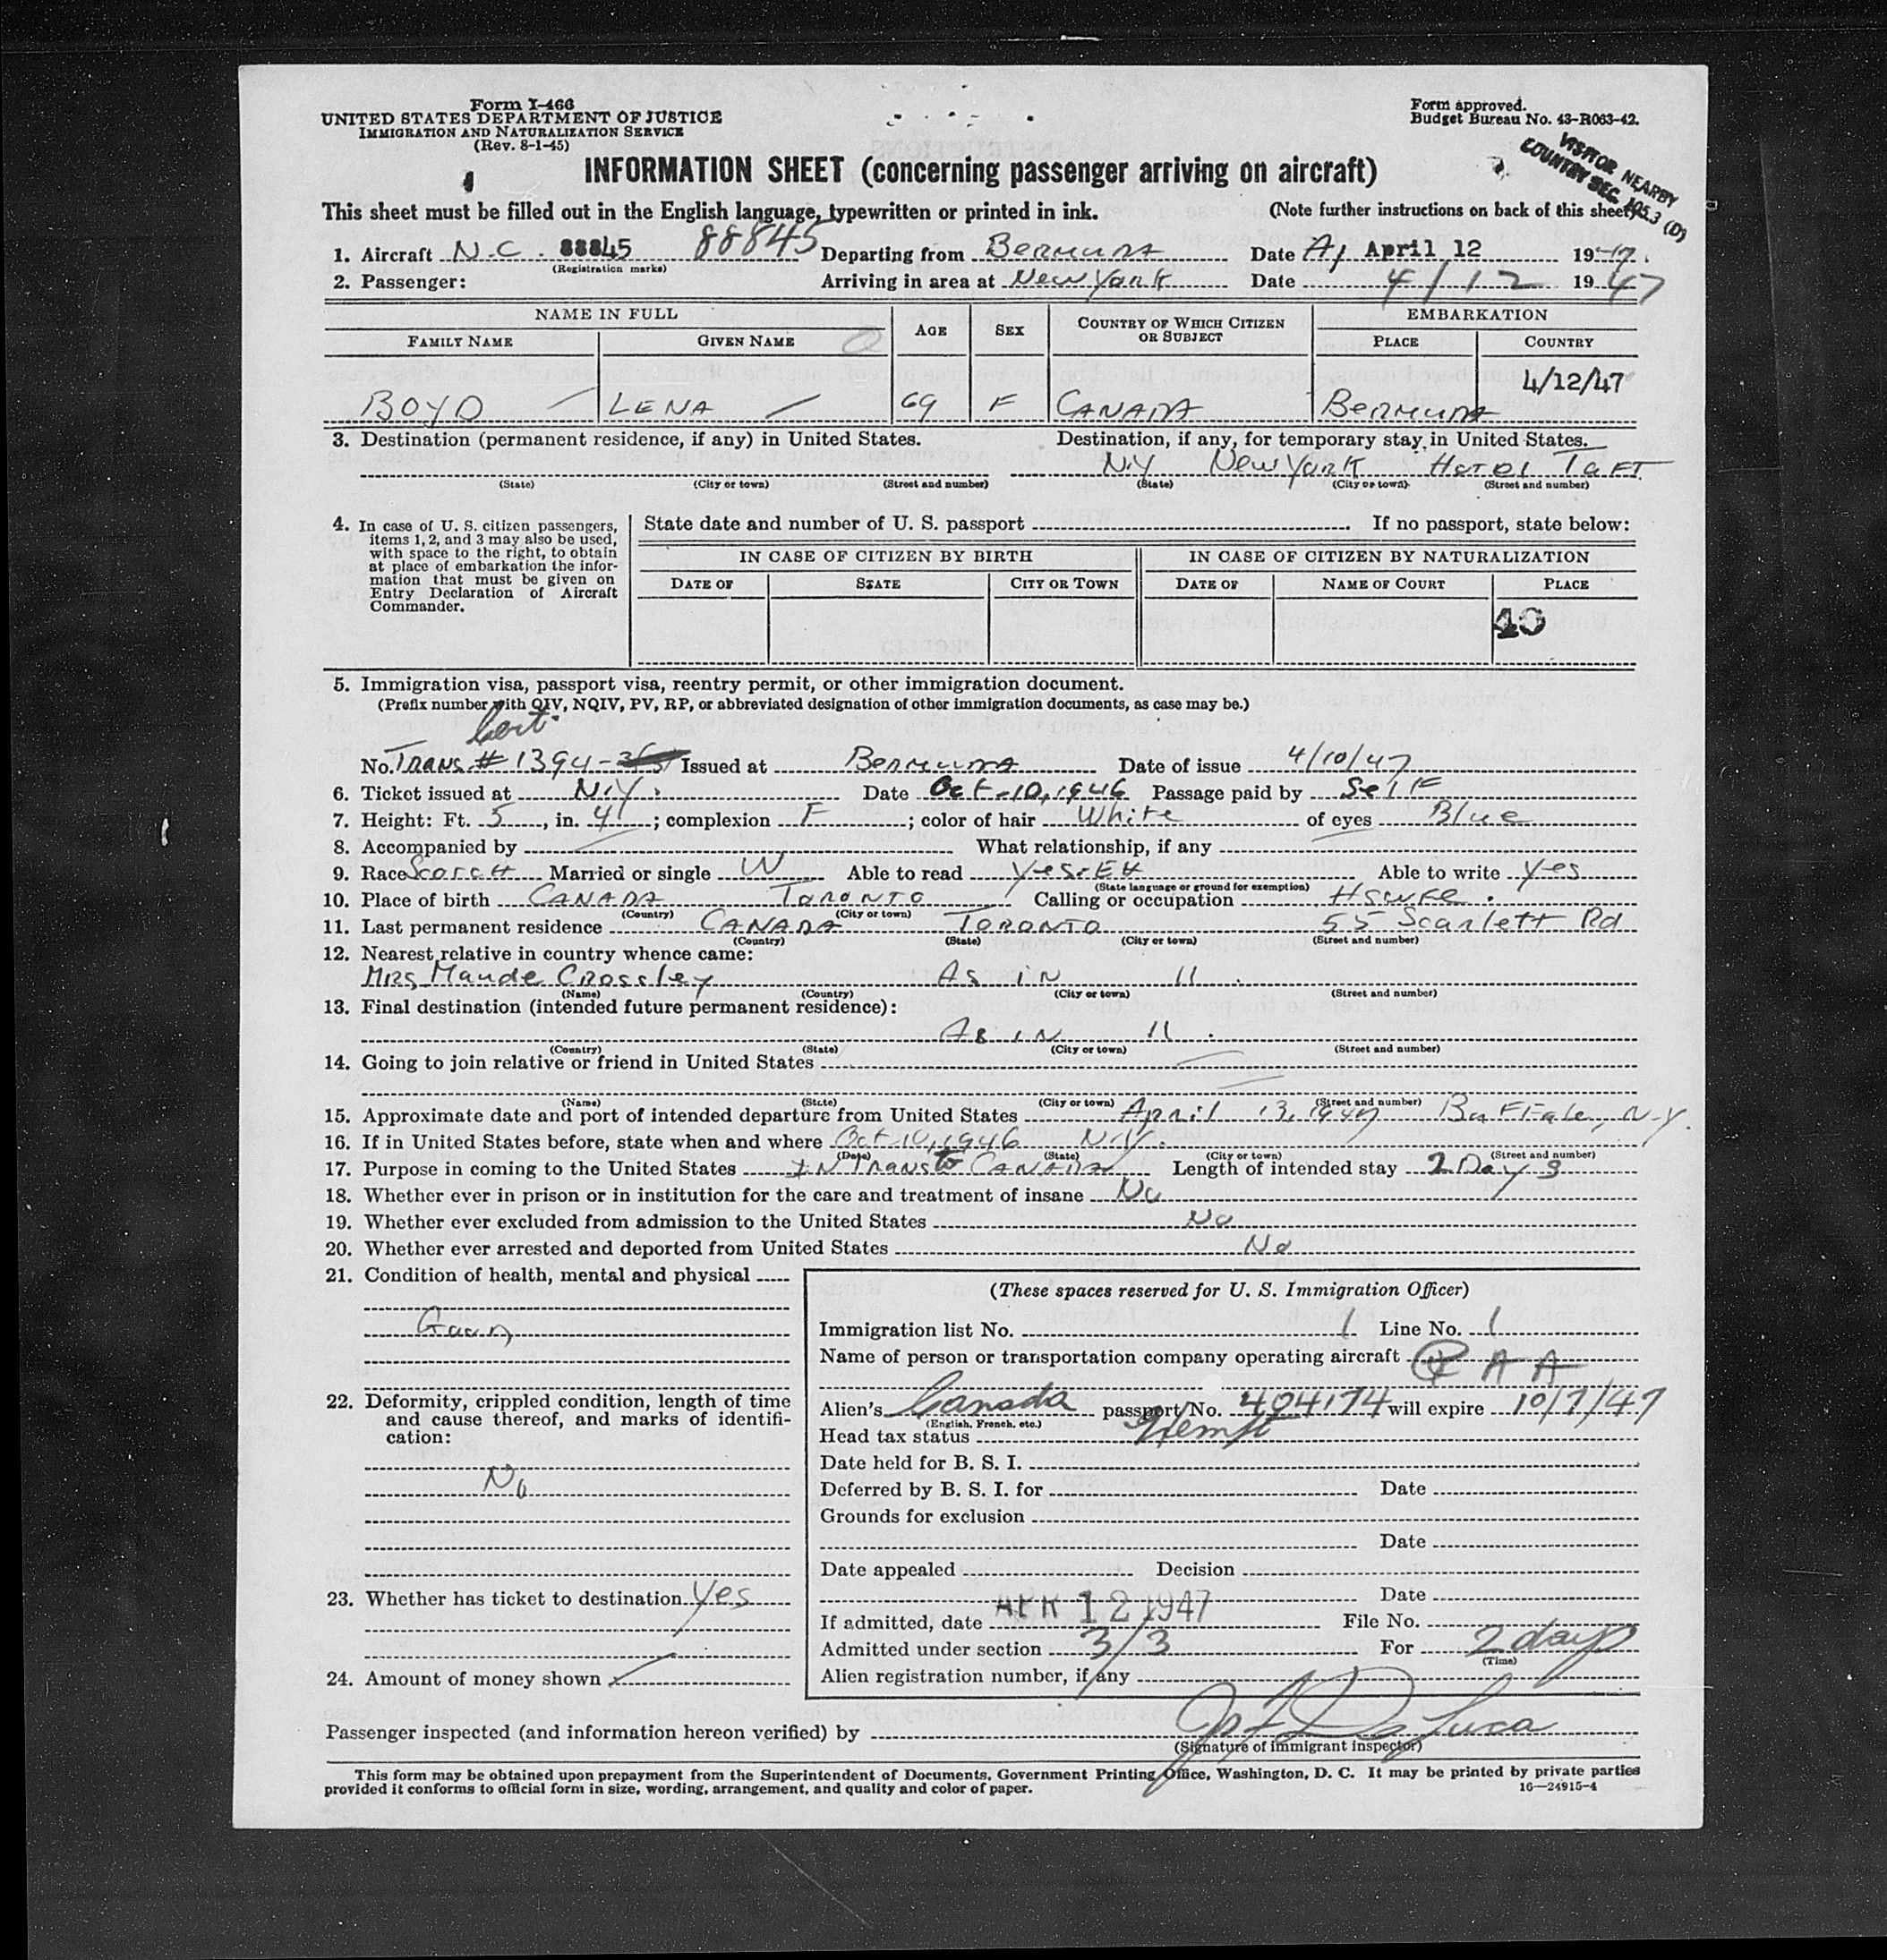 Form I-466
UNITED STATES DEPARTMENT OF JUSTICE
IMMIGRATION AND NATURALIZATION SERVICE
(Rev. 8-1-45)
Form approved.
Budget Bureau No. 43-R063-42.
VISITOR NEARBY
COUNTRY SEC. 105.3 (D)
INFORMATION SHEET (concerning passenger arriving on aircraft)
This sheet must be filled out in the English language, typewritten or printed in ink. (Note further instructions on back of this sheet)
1. Aircraft N.C. 88845 88845 Departing from BERMUDA Date April 12 1947.
(Registration marks)
2. Passenger: Arriving in area at New York Date 4/12 1947
NAME IN FULL AGE SEX COUNTRY OF WHICH CITIZEN OR SUBJECT EMBARKATION
FAMILY NAME GIVEN NAME PLACE COUNTRY
4/12/47
BOYD LENA 69 F CANADA BERMUDA
3. Destination (permanent residence, if any) in United States. Destination, if any, for temporary stay in United States.
N.Y New York HOTEL TaFT
(State) (City or town) (Street and number) (State) (City or town) (Street and number)
4. In case of U. S. citizen passengers, items 1, 2, and 3 may also be used, with space to the right, to obtain at place of embarkation the information that must be given on Entry Declaration of Aircraft Commander.
State date and number of U. S. passport If no passport, state below:
IN CASE OF CITIZEN BY BIRTH IN CASE OF CITIZEN BY NATURALIZATION
DATE OF STATE CITY OR TOWN DATE OF NAME OF COURT PLACE
40
5. Immigration visa, passport visa, reentry permit, or other immigration document.
(Prefix number with QIV, NQIV, PV, RP, or abbreviated designation of other immigration documents, as case may be.)
Cert.
No. Trans. # 1394- Issued at BERMUDA Date of issue 4/10/47
6. Ticket issued at N.Y. Date Oct-10,1946 Passage paid by SelF
7. Height: Ft. 5, in. 4; complexion F; color of hair White of eyes Blue
8. Accompanied by What relationship, if any
9. Race Scotch Married or single W Able to read Yes-EH Able to write Yes
(State language or ground for exemption)
10. Place of birth CANADA TORONTO Calling or occupation HSWFE.
(Country) (City or town)
11. Last permanent residence CANADA TORONTO 55 Scarlett Rd
(Country) (State) (City or town) (Street and number)
12. Nearest relative in country whence came:
MRS. Maude Crossley AS IN 11.
(Name) (Country) (City or town) (Street and number)
13. Final destination (intended future permanent residence):
AS IN 11.
(Country) (State) (City or town) (Street and number)
14. Going to join relative or friend in United States
(Name) (State) (City or town) (Street and number)
15. Approximate date and port of intended departure from United States April 13, 1947 BuFFalo, N.Y.
16. If in United States before, state when and where Oct-10,1946 N.Y.
(Date) (State) (City or town) (Street and number)
17. Purpose in coming to the United States IN Trans to CANADA Length of intended stay 2 Days
18. Whether ever in prison or in institution for the care and treatment of insane No
19. Whether ever excluded from admission to the United States No
20. Whether ever arrested and deported from United States No
21. Condition of health, mental and physical
Good
22. Deformity, crippled condition, length of time and cause thereof, and marks of identification:
No
23. Whether has ticket to destination Yes
24. Amount of money shown
(These spaces reserved for U. S. Immigration Officer)
Immigration list No. 1 Line No. 1
Name of person or transportation company operating aircraft P A A
Alien's Canada passport No. 404174 will expire 10/7/47
(English, French, etc.)
Head tax status Exempt
Date held for B. S. I.
Deferred by B. S. I. for Date
Grounds for exclusion
Date
Date appealed Decision
Date
If admitted, date APR 12 1947 File No.
Admitted under section 3/3 For 2 days
(Time)
Alien registration number, if any
Passenger inspected (and information hereon verified) by
(Signature of immigrant inspector)
This form may be obtained upon prepayment from the Superintendent of Documents, Government Printing Office, Washington, D. C. It may be printed by private parties
provided it conforms to official form in size, wording, arrangement, and quality and color of paper. 16—24915-4